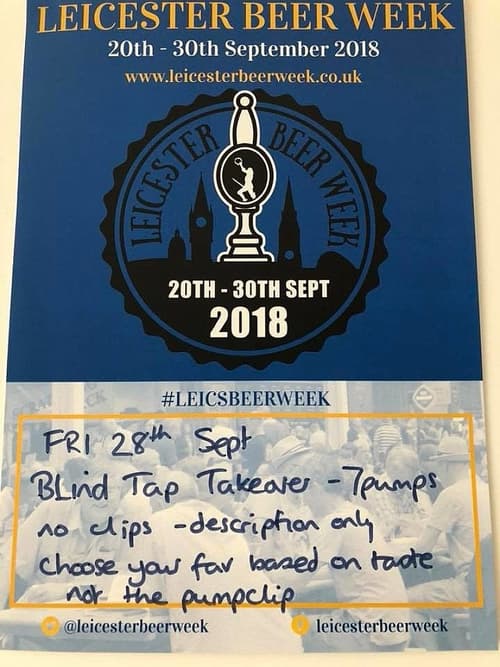 LEICESTER BEER WEEK
20th - 30th September 2018
www.leicesterbeerweek.co.uk
LEICESTER BEER WEEK
20TH - 30TH SEPT
2018
#LEICSBEERWEEK
FRI 28th Sept
Blind Tap Takeover - 7pumps
no clips - description only
Choose your fav based on taste
not the pumpclip
@leicesterbeerweek
leicesterbeerweek